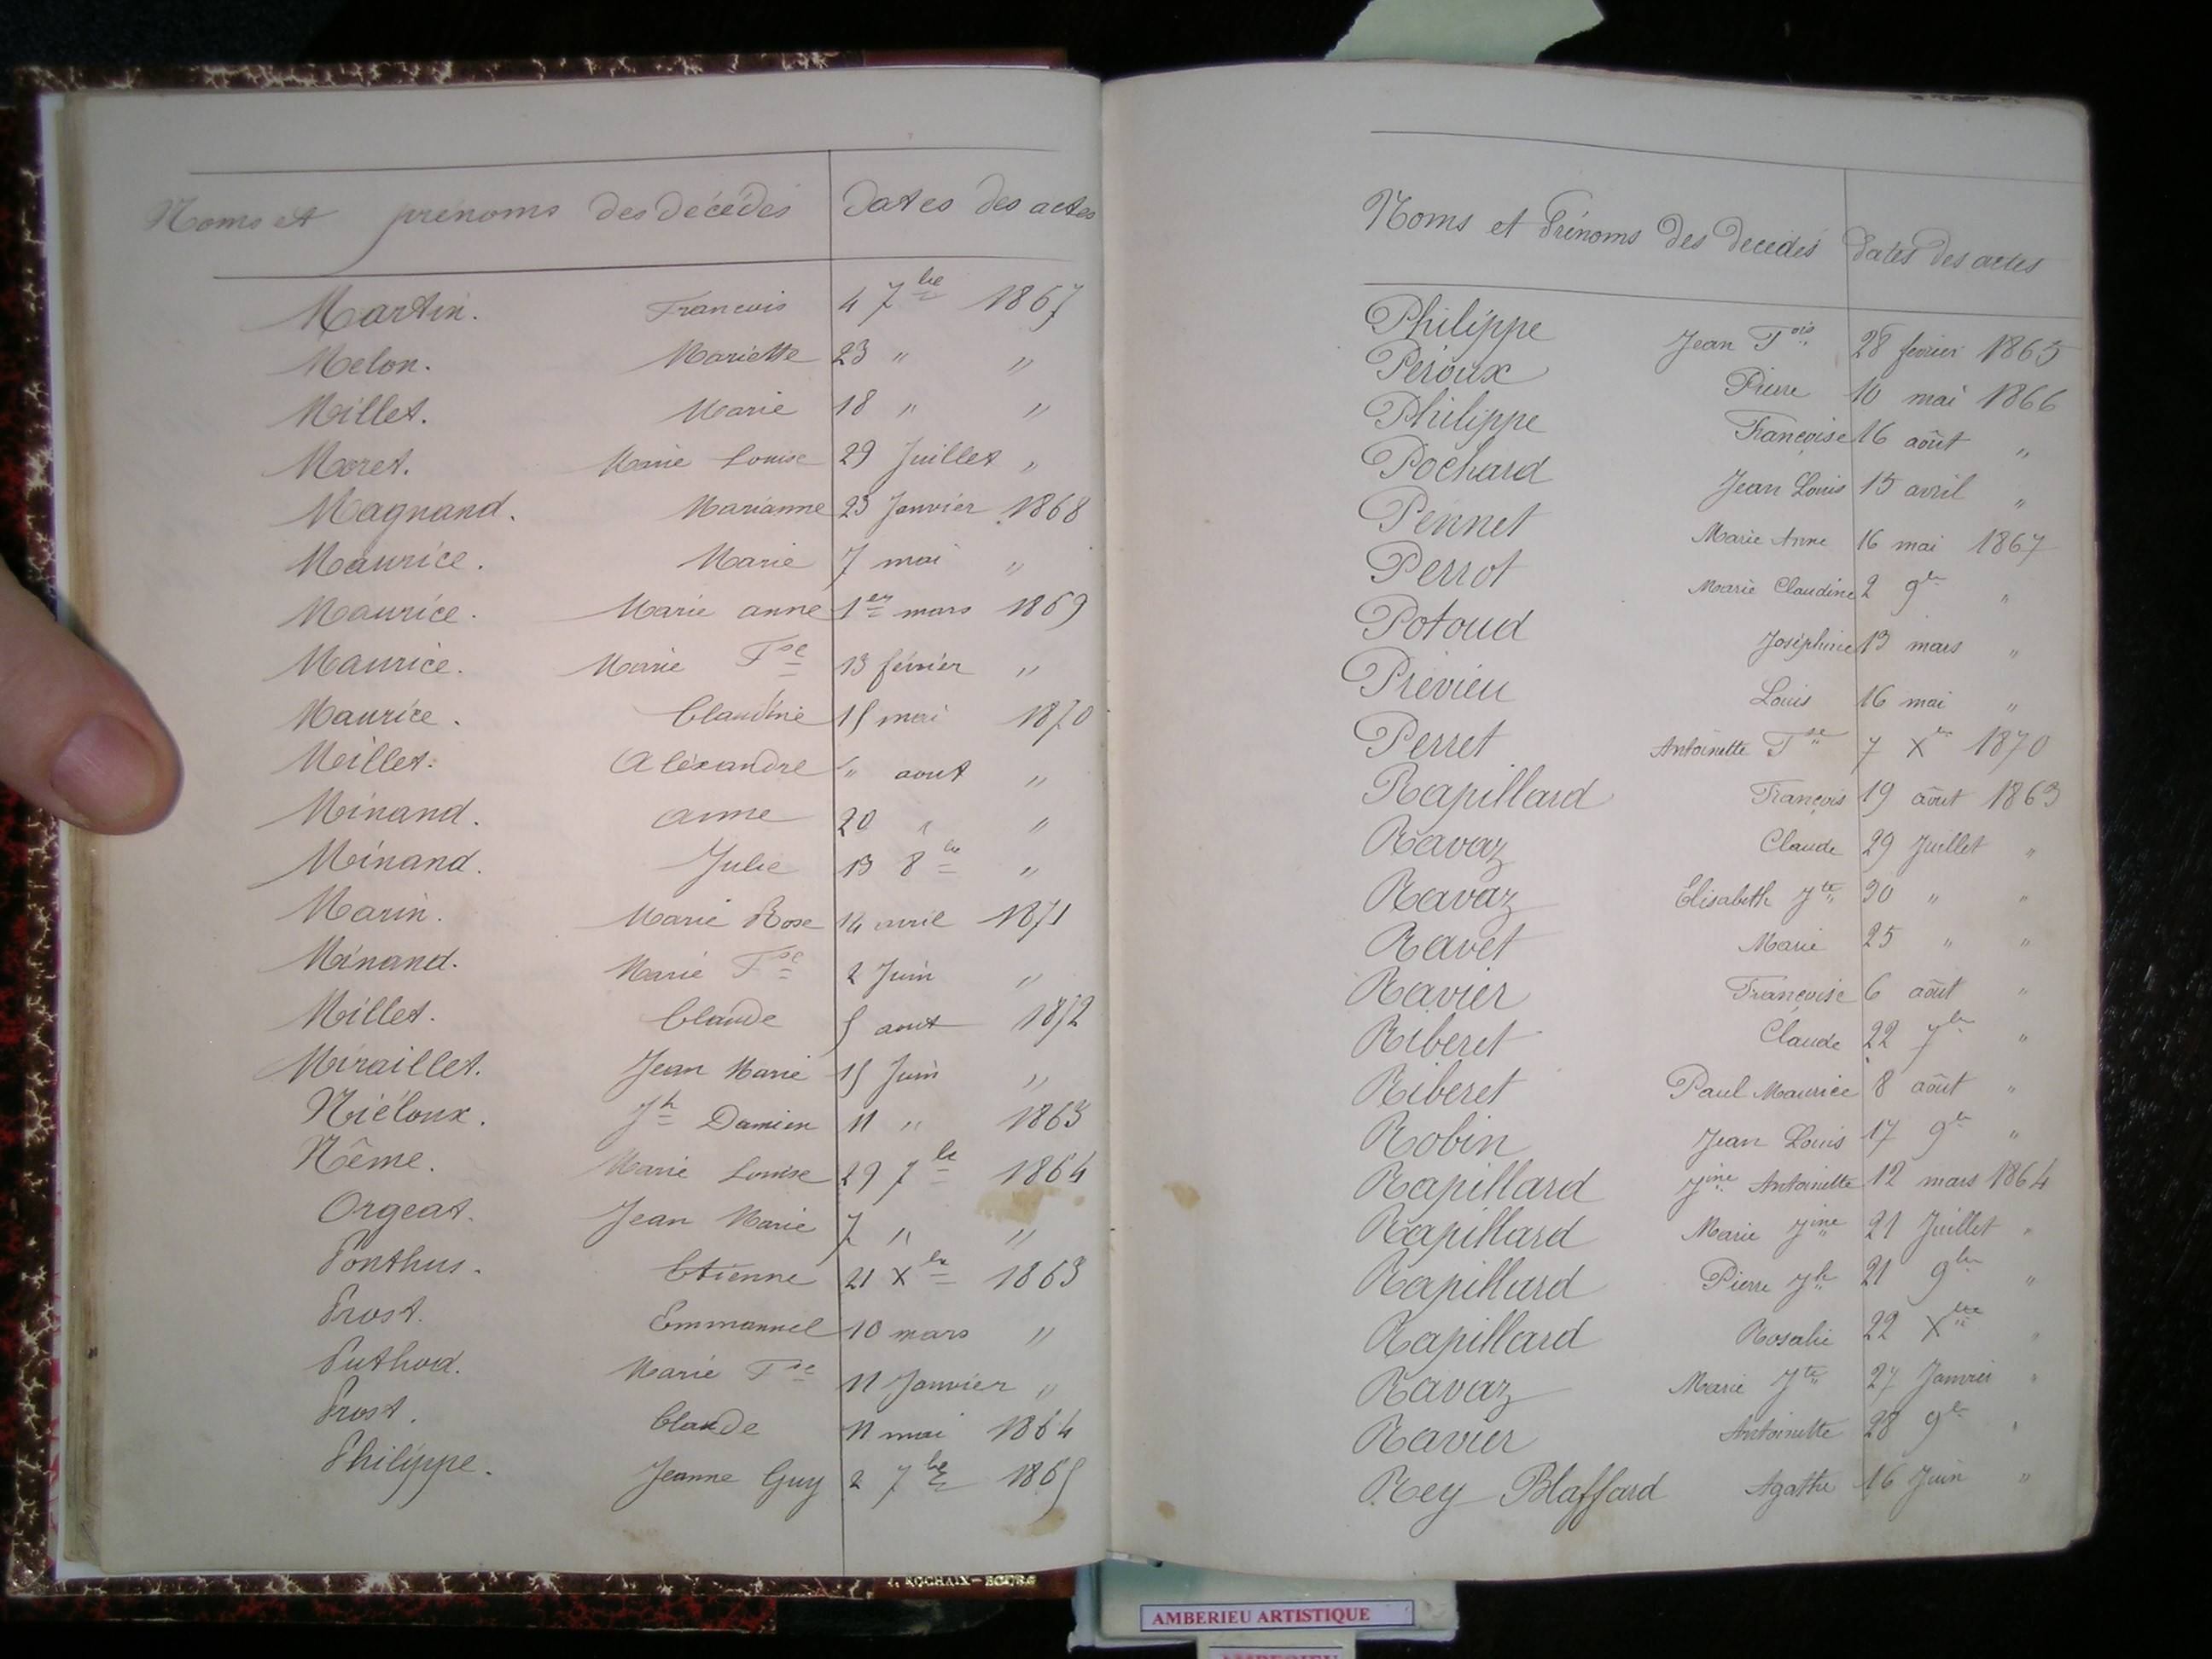 Noms et prénoms des décédés Dates des actes
Martin. Francois 4 7bre 1867
Melon. Mariette 23 " "
Millet. Marie 18 " "
Moret. Marie Louise 29 Juillet "
Magnand. Marianne 23 Janvier 1868
Maurice. Marie 7 mai "
Maurice. Marie anne 1er mars 1869
Maurice. Marie Fse 13 février "
Maurice. Claudine 15 mai 1870
Meillet. Aléxandre " aout "
Minand. anne 20 " "
Minand. Julie 13 8bre "
Marin. Marie Rose 14 avril 1871
Minand. Marie Fse 2 Juin "
Millet. Claude 5 aout 1872
Miraillet. Jean Marie 15 Juin "
Niéloux. Jh Damien 11 " 1863
Nême. Marie Louise 29 7bre 1864
Orgeat. Jean Marie 7 " "
Ponthus. Etienne 21 Xbre 1863
Prost. Emmanuel 10 mars "
Puthod. Marie Fse 11 Janvier "
Prost. Claude 11 mai 1864
Philippe. Jeanne Guy 2 7bre 1865
Noms et Prénoms des decedés Dates des actes
Philippe Jean Fois 28 fevrier 1865
Péroux Pierre 10 mai 1866
Philippe Françoise 16 août "
Pochard Jean Louis 15 avril "
Pennet Marie Anne 16 mai 1867
Perrot Marie Claudine 2 9bre "
Potoud Joséphine 13 mars "
Prévieu Louis 16 mai "
Perret Antoinette Fse 7 Xbre 1870
Rapillard François 19 août 1863
Ravaz Claude 29 Juillet "
Ravaz Elisabeth Jte 30 " "
Ravet Marie 25 " "
Ravier Françoise 6 août "
Riberet Claude 22 7bre "
Riberet Paul Maurice 8 août "
Robin Jean Louis 17 9bre "
Rapillard Jine Antoinette 12 mars 1864
Rapillard Marie Jine 21 Juillet "
Rapillard Pierre Jh 21 9bre "
Rapillard Rosalie 22 Xbre "
Ravaz Marie Jte 27 Janvier "
Ravier Antoinette 28 9bre "
Rey Blaffard Agathe 16 Juin "
AMBERIEU ARTISTIQUE